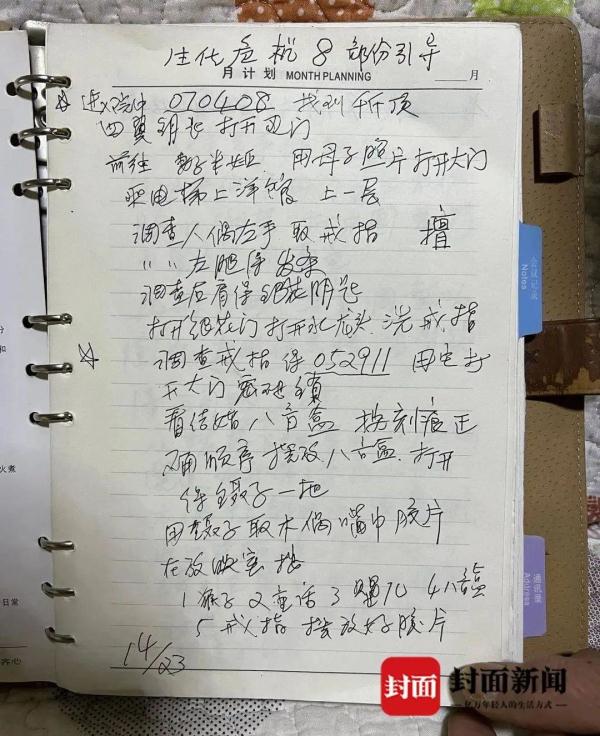 生化危机8部份引导
月计划 MONTH PLANNING 月
☆ 进入院中 070408 找到千斤顶
四翼钥匙打开西门
前往 多 半姫 用母子照片打开大门
乘电梯上洋馆 上一层
调查人偶左手取戒指
〃〃左腿得发条
调查后有得纽装钥匙
打开纽装门打开水龙头.洗戒指
☆ 调查戒指得 052911 用它打
开大门密码锁
看结婚八音盒 按刻痕正
确顺序摆放八音盒.打开
得镊子一把
用镊子取木偶嘴中胶片
在放映室按
1猴子 2童话 3 4八音盒
5戒指 摆放好胶片
14/23
会议记录
Notes
通讯录
Address
分
和
火煮
日常
齐心
封面 封面新闻
亿万年轻人的生活方式